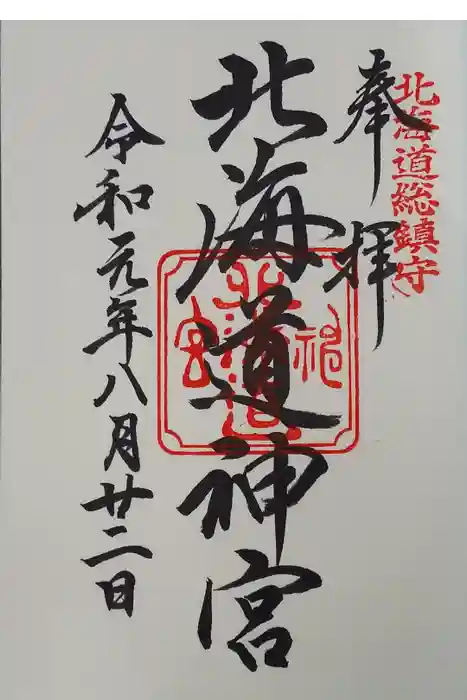 北海道総鎮守
奉拝
北海道神宮
令和元年八月廿二日
北海道神宮